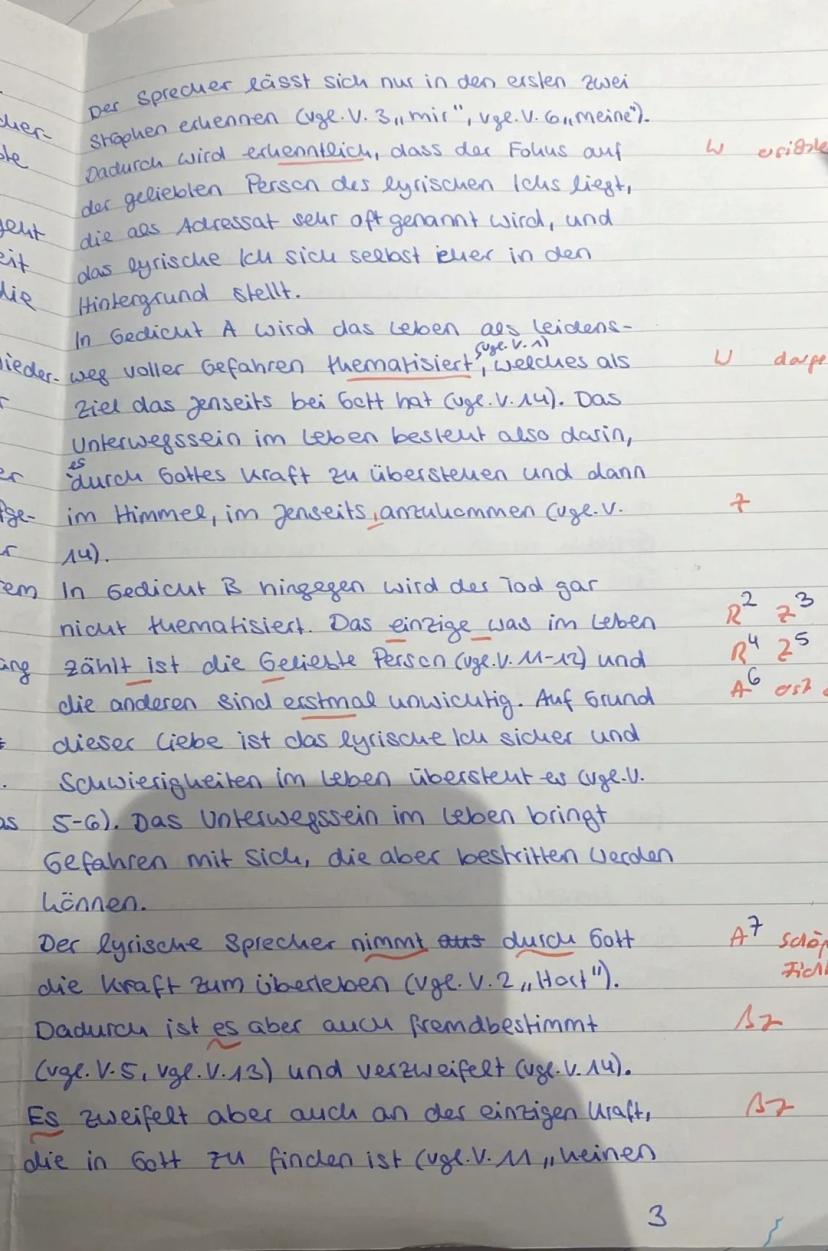 Der Sprecher lässt sich nur in den ersten zwei
Strophen erkennen (vgl. V. 3 „mir", vgl. V. 6 „meine").
Dadurch wird erkenntlich, dass der Fokus auf
der geliebten Person des lyrischen Ichs liegt,
die als Adressat sehr oft genannt wird, und
das lyrische Ich sich selbst eher in den
Hintergrund stellt.
In Gedicht A wird das Leben als Leidens-
(vgl. V. 1)
weg voller Gefahren thematisiert, welches als
Ziel das Jenseits bei Gott hat (vgl. V. 14). Das
Unterwegssein im Leben besteht also darin,
es
durch Gottes Kraft zu überstehen und dann
im Himmel, im Jenseits, anzukommen (vgl. V.
14).
In Gedicht B hingegen wird der Tod gar
nicht thematisiert. Das einzige was im Leben R2 Z3
zählt ist die Geliebte Person (vgl. V. 11-12) und R4 Z5
die anderen sind erstmal unwichtig. Auf Grund A6
dieser Liebe ist das lyrische Ich sicher und
Schwierigkeiten im Leben übersteht es (vgl. V.
5-6). Das Unterwegssein im Leben bringt
Gefahren mit sich, die aber bestritten werden
können.
Der lyrische Sprecher nimmt aus durch Gott A7
die Kraft zum überleben (vgl. V. 2 „Hort").
Dadurch ist es aber auch fremdbestimmt Bz
(vgl. V. 5, vgl. V. 13) und verzweifelt (vgl. V. 14).
Es zweifelt aber auch an der einzigen Kraft, Bz
die in Gott zu finden ist (vgl. V. 11 „keinen
3